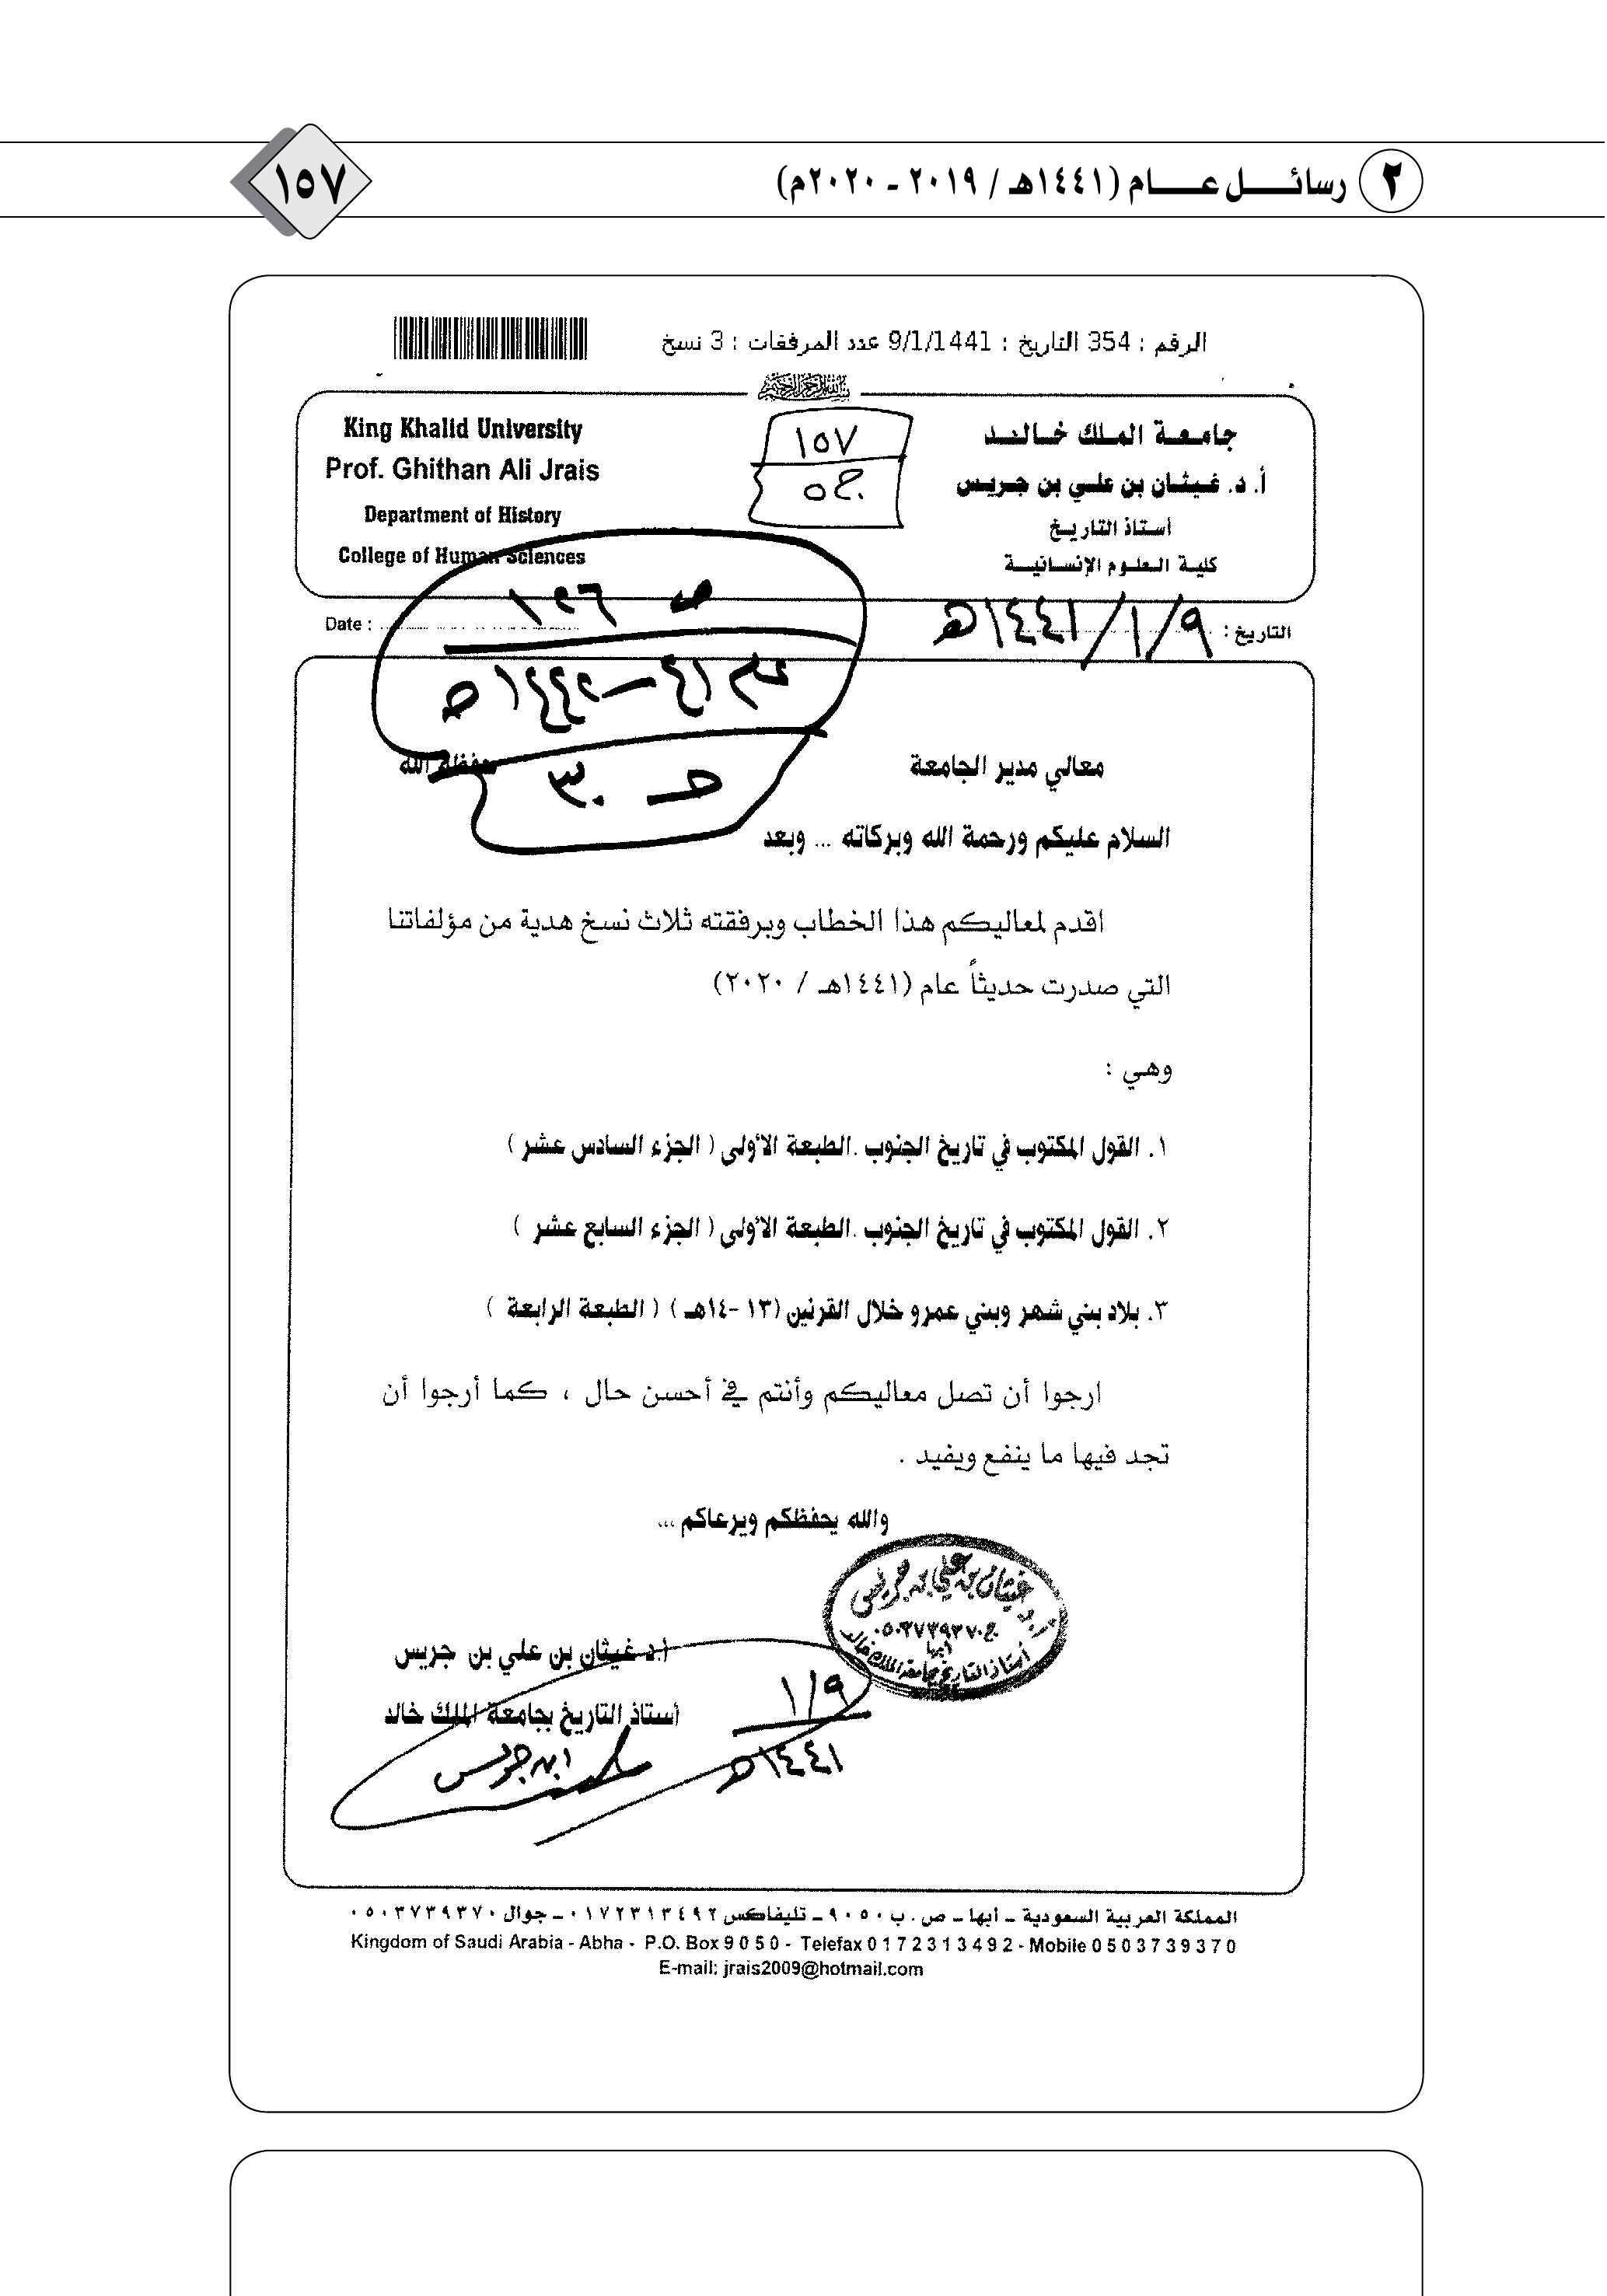 ٢ رسائل عام (١٤٤١هـ / ٢٠١٩ - ٢٠٢٠م)
١٥٧
الرقم : 354 التاريخ : 9/1/1441 عدد المرفقات : 3 نسخ
بسم الله الرحمن الرحيم
جامعة الملك خالد
أ. د. غيثان بن علي بن جريس
أستاذ التاريخ
كلية العلوم الإنسانية
١٥٧
King Khalid University
Prof. Ghithan Ali Jrais
Department of History
College of Human Sciences
التاريخ : ١٤٤١/١/٩هـ
Date :
معالي مدير الجامعة حفظه الله
السلام عليكم ورحمة الله وبركاته ... وبعد
اقدم لمعاليكم هذا الخطاب وبرفقته ثلاث نسخ هدية من مؤلفاتنا
التي صدرت حديثاً عام (١٤٤١هـ / ٢٠٢٠)
وهي :
١. القول المكتوب في تاريخ الجنوب .الطبعة الأولى ( الجزء السادس عشر )
٢. القول المكتوب في تاريخ الجنوب .الطبعة الأولى ( الجزء السابع عشر )
٣. بلاد بني شهر وبني عمرو خلال القرنين (١٣ -١٤هـ ) ( الطبعة الرابعة )
ارجوا أن تصل معاليكم وأنتم في أحسن حال ، كما أرجوا أن
تجد فيها ما ينفع ويفيد .
والله يحفظكم ويرعاكم ...
أ. د غيثان بن علي بن جريس
ج ٠٥٠٣٧٣٩٣٧٠
أبها
أستاذ التاريخ بجامعة الملك خالد
أ.د غيثان بن علي بن جريس
أستاذ التاريخ بجامعة الملك خالد
١/٩
١٤٤١هـ
ابن جريس
المملكة العربية السعودية ـ أبها ـ ص. ب ٩٠٥٠ ـ تليفاكس ٠١٧٢٣١٣٤٩٢ ـ جوال ٠٥٠٣٧٣٩٣٧٠
Kingdom of Saudi Arabia - Abha - P.O. Box 9 0 5 0 - Telefax 0 1 7 2 3 1 3 4 9 2 - Mobile 0 5 0 3 7 3 9 3 7 0
E-mail: jrais2009@hotmail.com